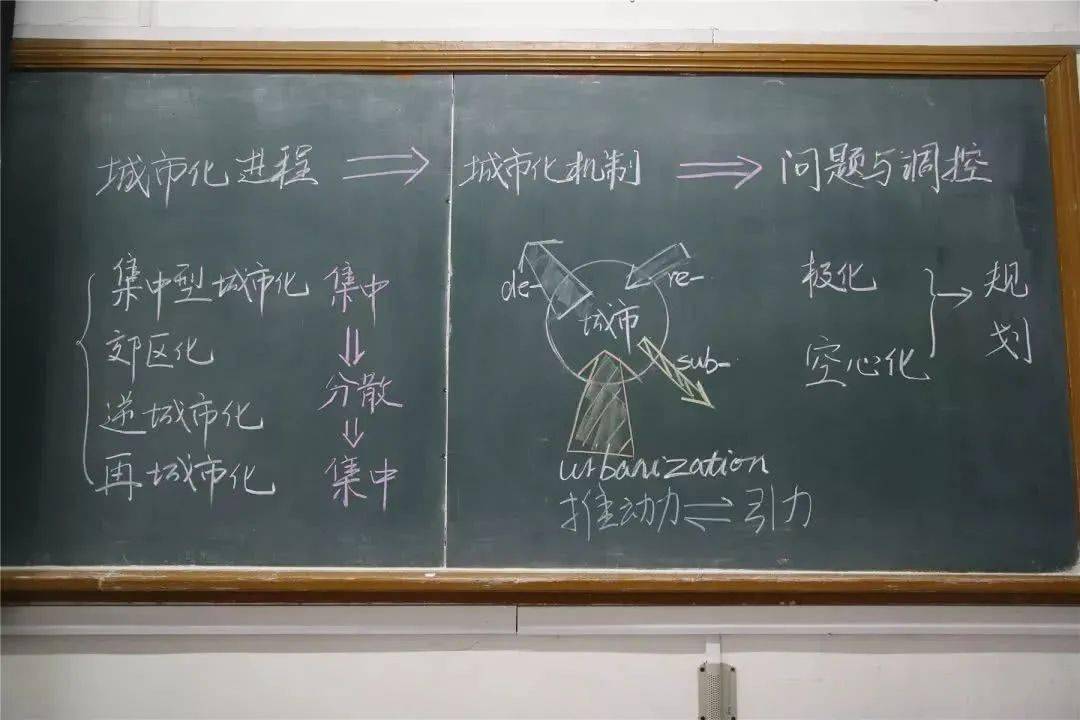 城市化进程 ⇒ 城市化机制 ⇒ 问题与调控
集中型城市化
郊区化
逆城市化
再城市化
集中
⇓
分散
⇓
集中
de-
re-
城市
sub-
urbanization
推动力 ⇌ 引力
极化
空心化
→ 规划